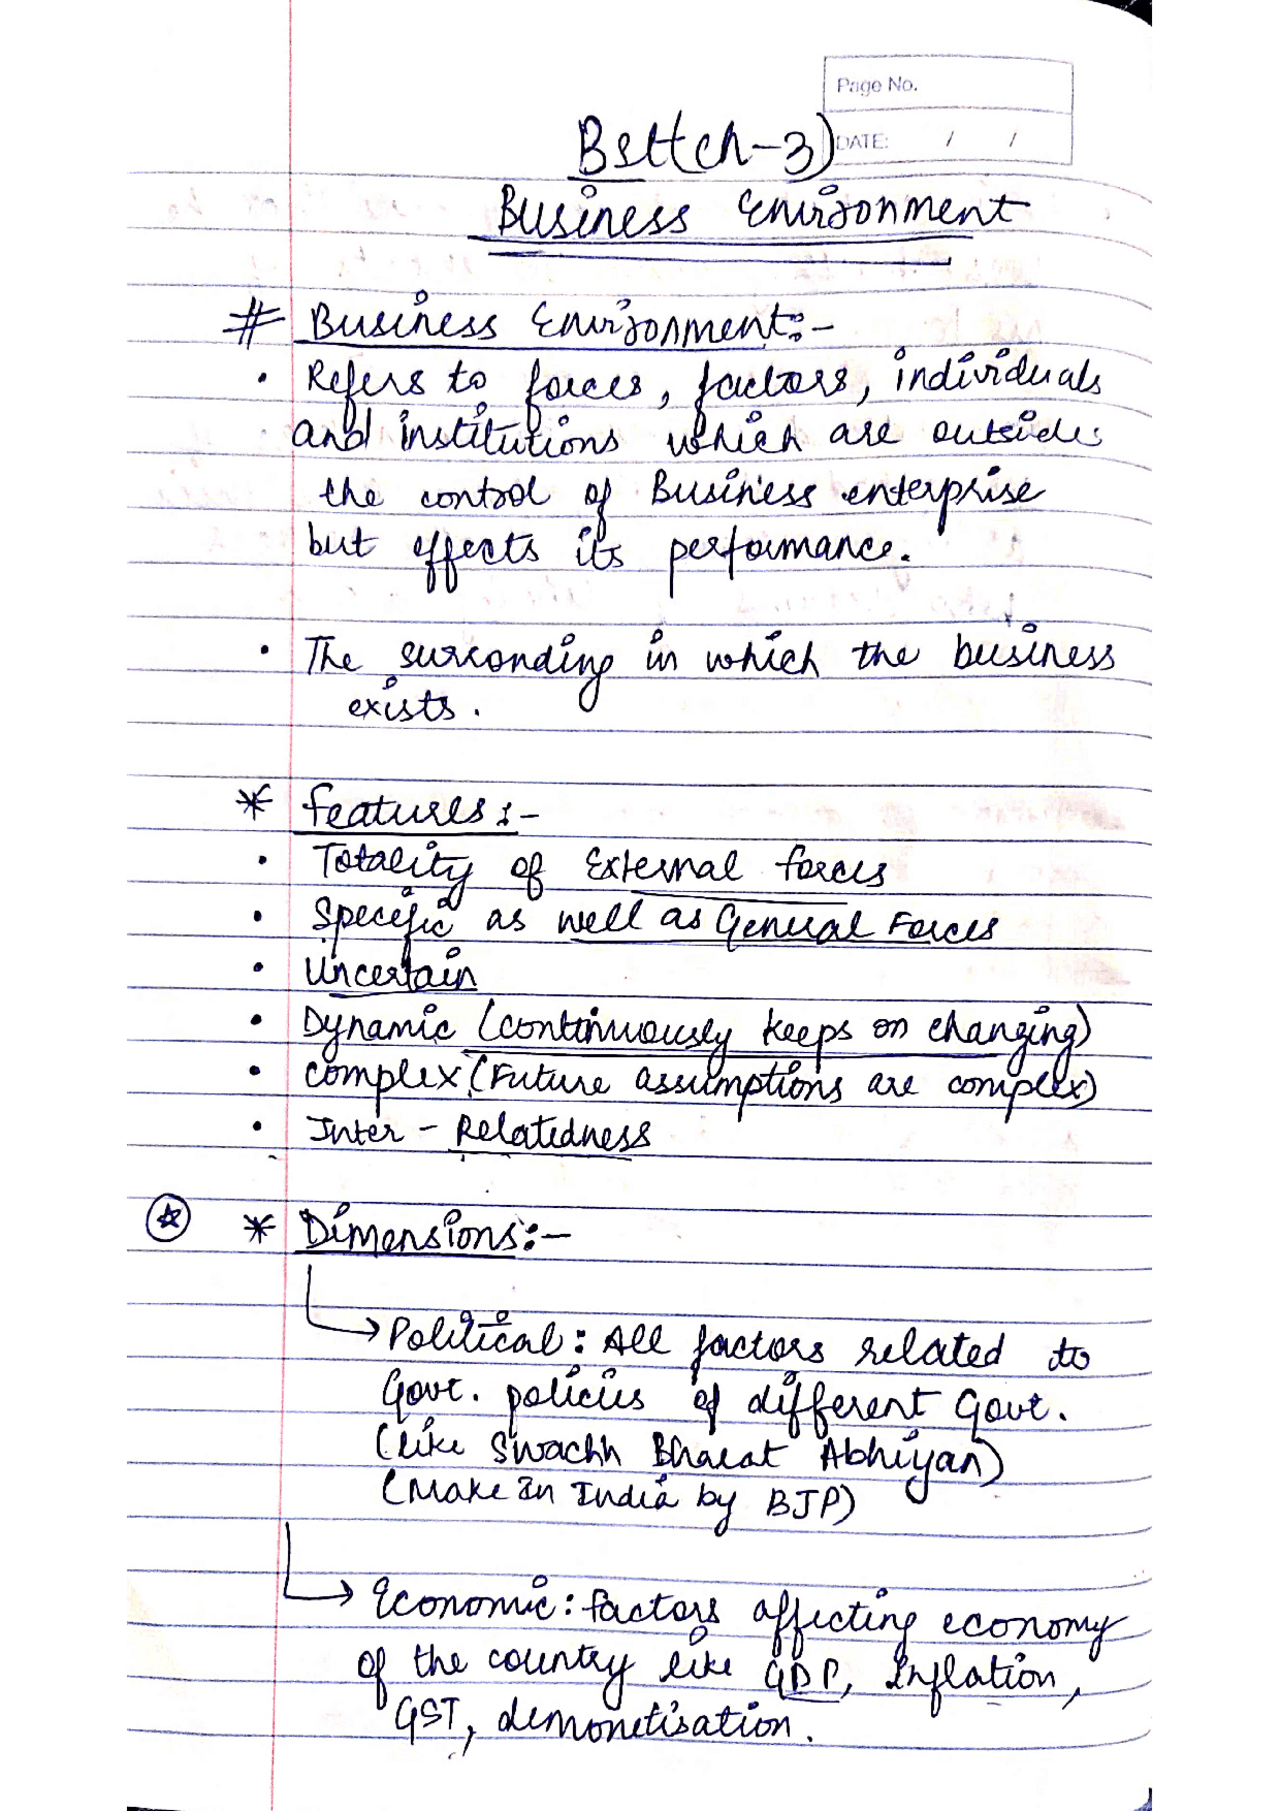 Page No.
DATE: / /
Bst(ch-3)
Business Environment
# Business Environment:-
• Refers to forces, factors, individuals
and institutions which are outside
the control of Business enterprise
but effects its performance.
• The surronding in which the business
exists.
* features:-
• Totality of External forces
• Specific as well as General Forces
• Uncertain
• Dynamic (continuously keeps on changing)
• complex (Future assumptions are complex)
• Inter - Relatedness
* Dimensions:-
→ Political: All factors related to
Govt. policies of different Govt.
(like Swachh Bharat Abhiyan)
(Make In India by BJP)
→ Economic: factors affecting economy
of the country like GDP, Inflation,
GST, demonetisation.